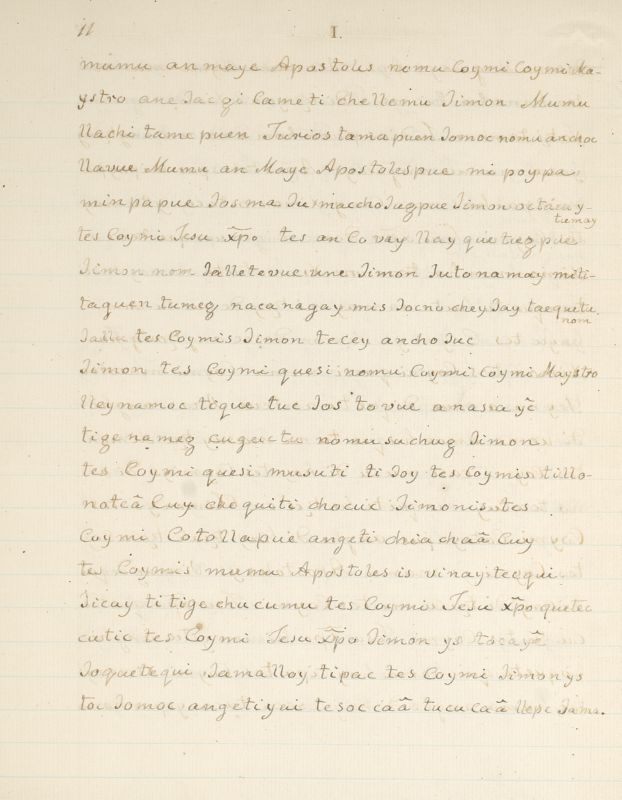 11 I.
mumu an maye Apostoles nomu Coymi Coymi Ma-
ystro ane Jacgi Cameti chellomu Simon Mumu
llachi tame puen Jurios tama puen Jomoc nomu anchoc
llavue Mumu an Maye Apostoles pue mi poy pa
min pa pue Jos ma Ju maccho Juz pue Simon octacu y-
tuemay
tes Coymi Jesu x̃po tes an Co vay llay que tuez pue
Simon nom Jalletevue une Simon Juto na may miti-
taquen tumez naca nagay mis Jocno chey Jay taequetu.
nom
Jallu tes Coymis Simon tecey ancho Juc
Simon tes Coymi quesi nomu Coymi Coymi Maystro
lleynamoc teque tuc Jos to vue anasia yc̃
tige namez cuguctu nomu suchuz Simon
tes Coymi quesi musuti ti Joy tes Coymis tillo-
notcâ Cuy chequiti chocuc Simonis tes
Coymi Cotollapue angeti chiachaâ Cuy
tes Coymis mumu Apostoles is vinay tecqui.
Jicay ti tige chucumu tes Coymi Jesu x̃po quetec
cutic tes Coymi Jesu x̃po Simon ys tocayc̃
Joquetequi Jamalloy tipac tes Coymi Simon ys
toc Jomoc angetiyui tesoc caâ tucu caâ llepc Jama.